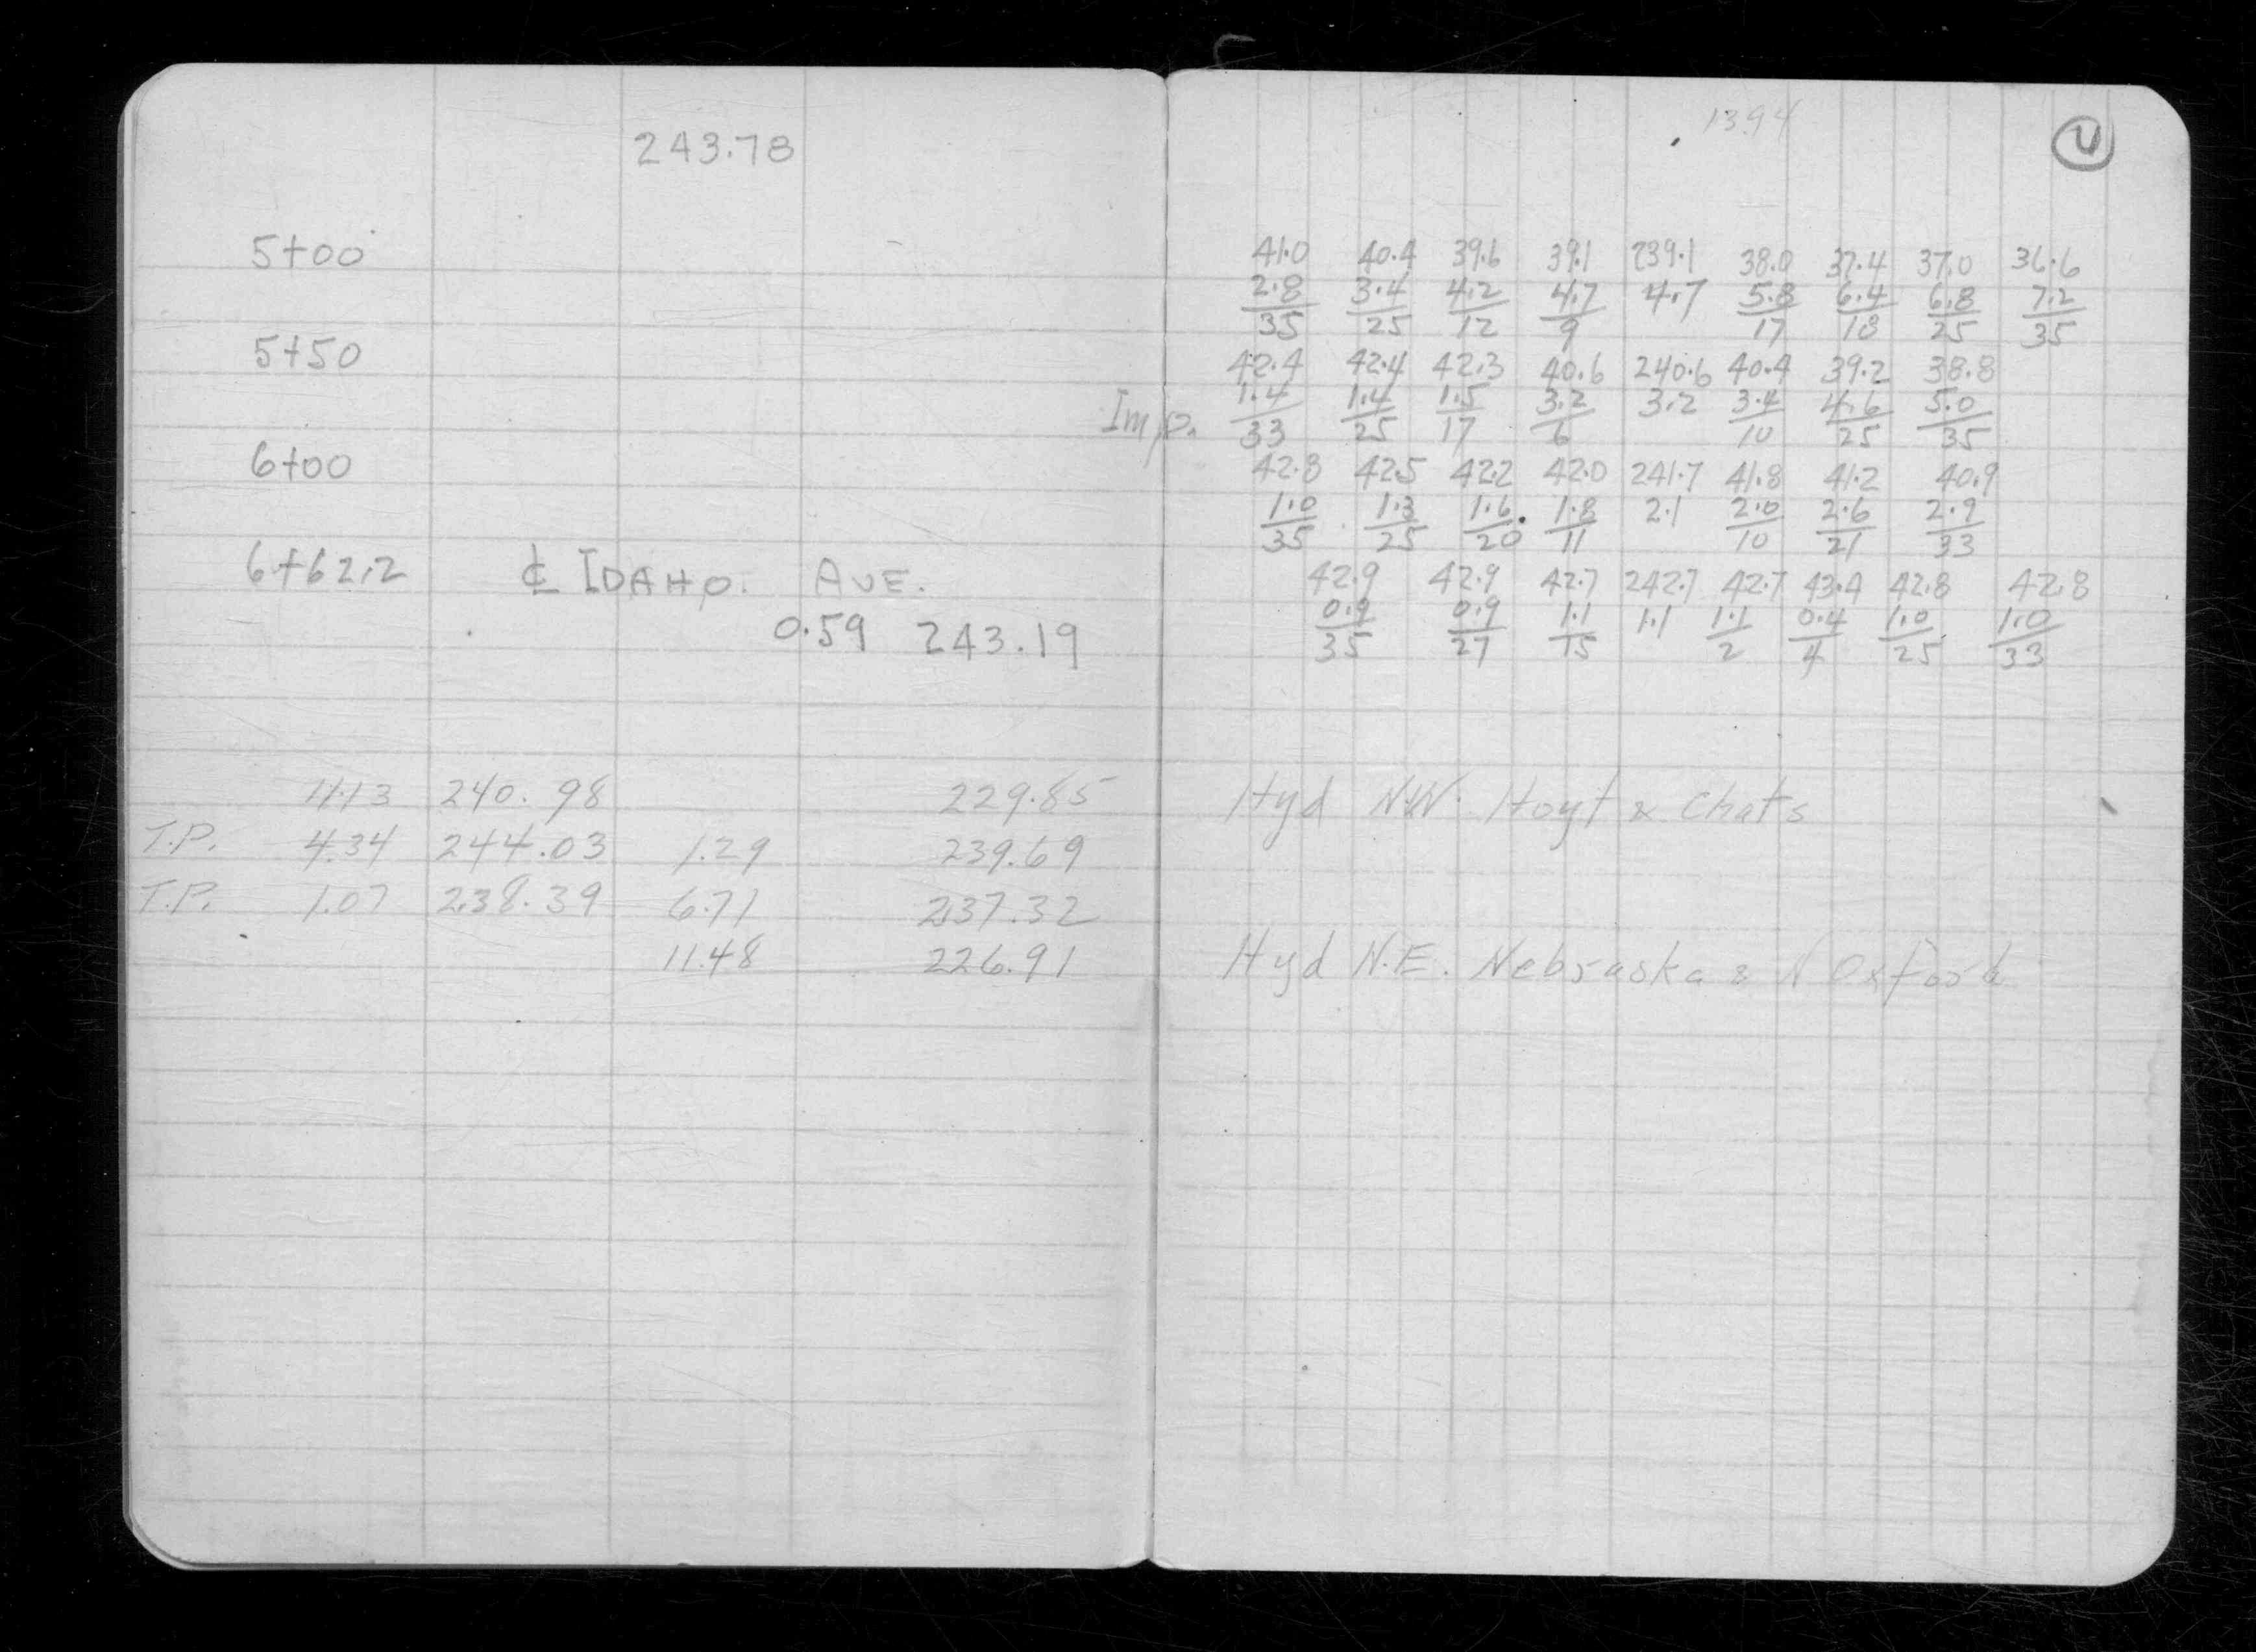 243.78
5+00
5+50
6+00
6+62.2 ℄ IDAHO. AVE.
0.59 243.19
11.13 240.98 229.85
T.P. 4.34 244.03 1.29 239.69
T.P. 1.07 238.39 6.71 237.32
11.48 226.91
1394
4
41.0 40.4 39.6 39.1 239.1 38.0 37.4 37.0 36.6
2.8 3.4 4.2 4.7 4.7 5.8 6.4 6.8 7.2
35 25 12 9 17 18 25 35
42.4 42.4 42.3 40.6 240.6 40.4 39.2 38.8
Imp. 1.4 1.4 1.5 3.2 3.2 3.4 4.6 5.0
33 25 17 6 10 25 35
42.8 42.5 42.2 42.0 241.7 41.8 41.2 40.9
1.0 1.3 1.6 1.8 2.1 2.0 2.6 2.9
35 25 20 11 10 21 33
42.9 42.9 42.7 242.7 42.7 43.4 42.8 42.8
0.9 0.9 1.1 1.1 1.1 0.4 1.0 1.0
35 27 15 2 4 25 33
Hyd N.W. Hoyt & Chats
Hyd N.E. Nebraska & N Oxford